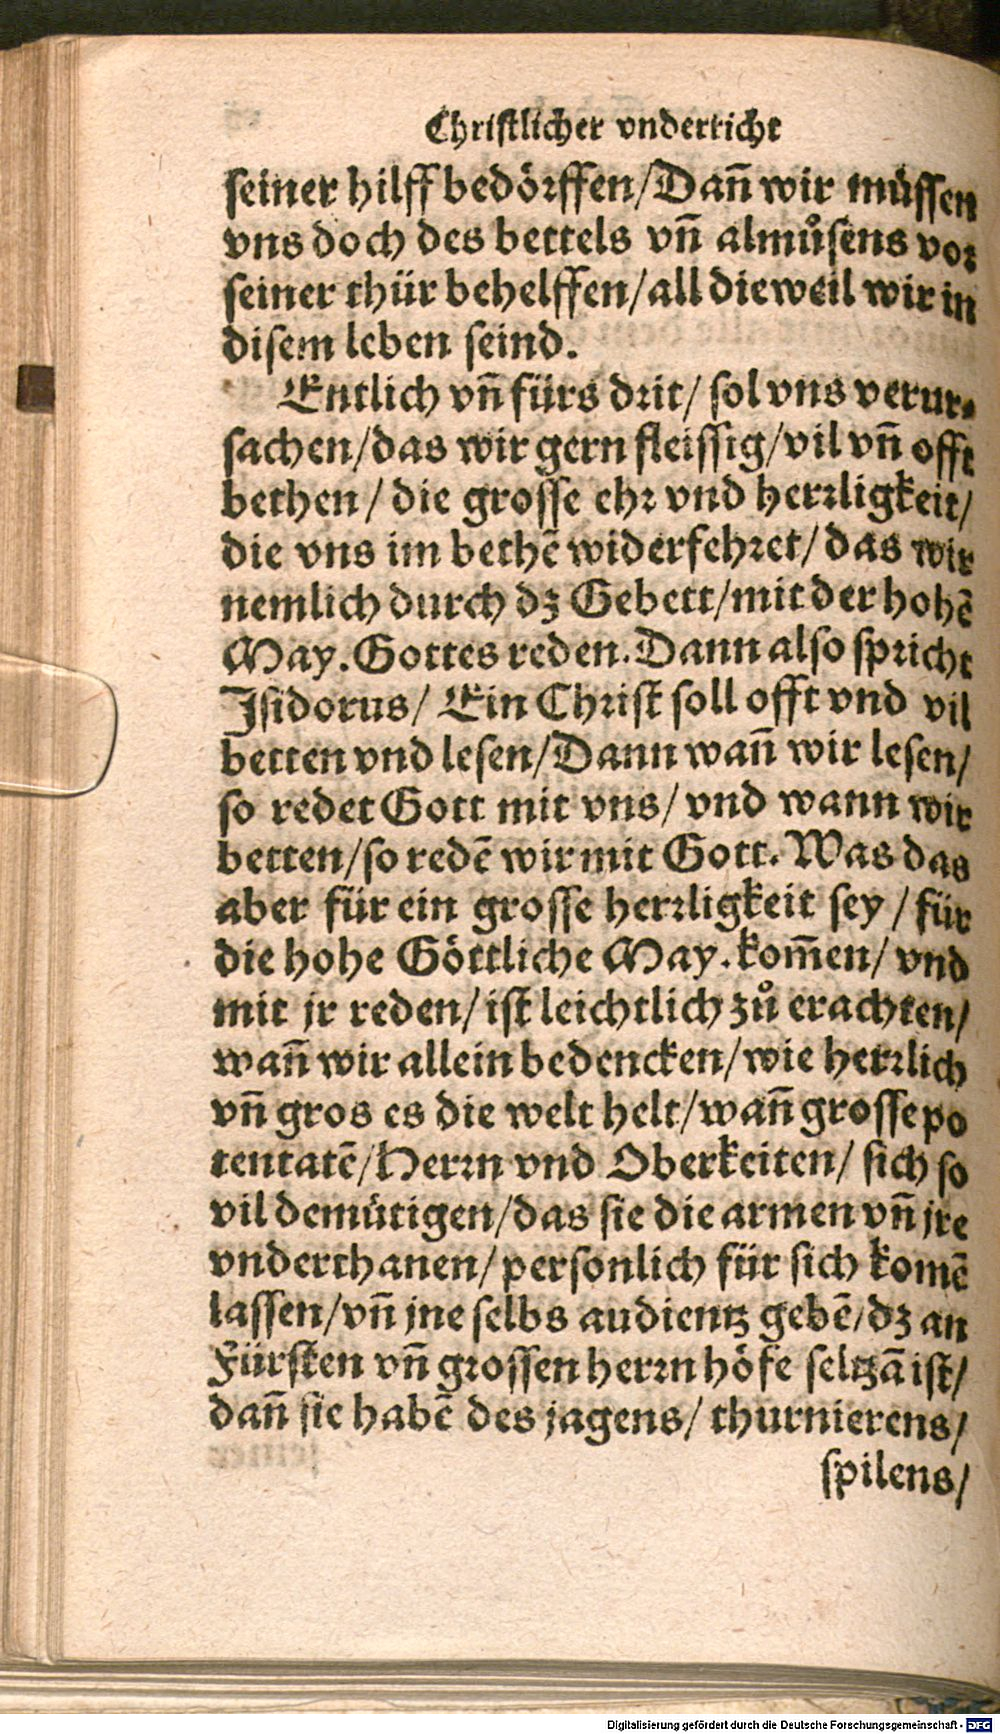 Christlicher vnderricht
seiner hilff bedörffen/Dañ wir müssen
vns doch des bettels vñ almůsens vor
seiner thür behelffen/all dieweil wir in
disem leben seind.
Entlich vñ fürs drit/ sol vns verur-
sachen/das wir gern fleissig/vil vñ offt
bethen/ die grosse ehr vnd herrligkeit/
die vns im bethē widerfehret/ das wir
nemlich durch dz Gebett/mit der hohē
May. Gottes reden. Dann also spricht
Isidorus/ Ein Christ soll offt vnd vil
betten vnd lesen/Dann wañ wir lesen/
so redet Gott mit vns/ vnd wann wir
betten/so redē wir mit Gott. Was das
aber für ein grosse herrligkeit sey/für
die hohe Göttliche May. kom̄en/ vnd
mit jr reden/ist leichtlich zů erachten/
wañ wir allein bedencken/wie herrlich
vñ gros es die welt helt/wañ grosse po
tentatē/Herrn vnd Oberkeiten/ sich so
vil demütigen/das sie die armen vñ jre
vnderthanen/personlich für sich komē
lassen/vñ jne selbs audientz gebē/dz an
Fürsten vñ grossen herrn höfe seltzā ist/
dañ sie habē des jagens/ thurnierens/
spilens/
Digitalisierung gefördert durch die Deutsche Forschungsgemeinschaft - DFG